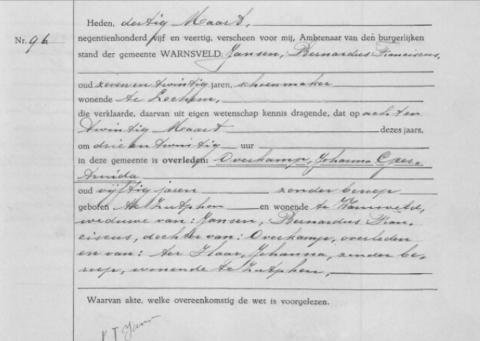 Nr. 96
Heden, dertig Maart,
negentienhonderd vijf en veertig, verscheen voor mij, Ambtenaar van den burgerlijken
stand der gemeente WARNSVELD: Jansen, Bernardus Franciscus,
oud zeven en twintig jaren, schoenmaker
wonende te Lochem,
die verklaarde, daarvan uit eigen wetenschap kennis dragende, dat op acht en
twintig Maart dezes jaars,
om drie en twintig uur
in deze gemeente is overleden: Overkamp, Johanna
oud vijftig jaren zonder beroep
geboren te Zutphen en wonende te Warnsveld,
weduwe van: Jansen, Bernardus Fran
ciscus, dochter van: Overkamp, overleden
en van: ter Haar, Johanna, zonder be
roep, wonende te Zutphen,
Waarvan akte, welke overeenkomstig de wet is voorgelezen.